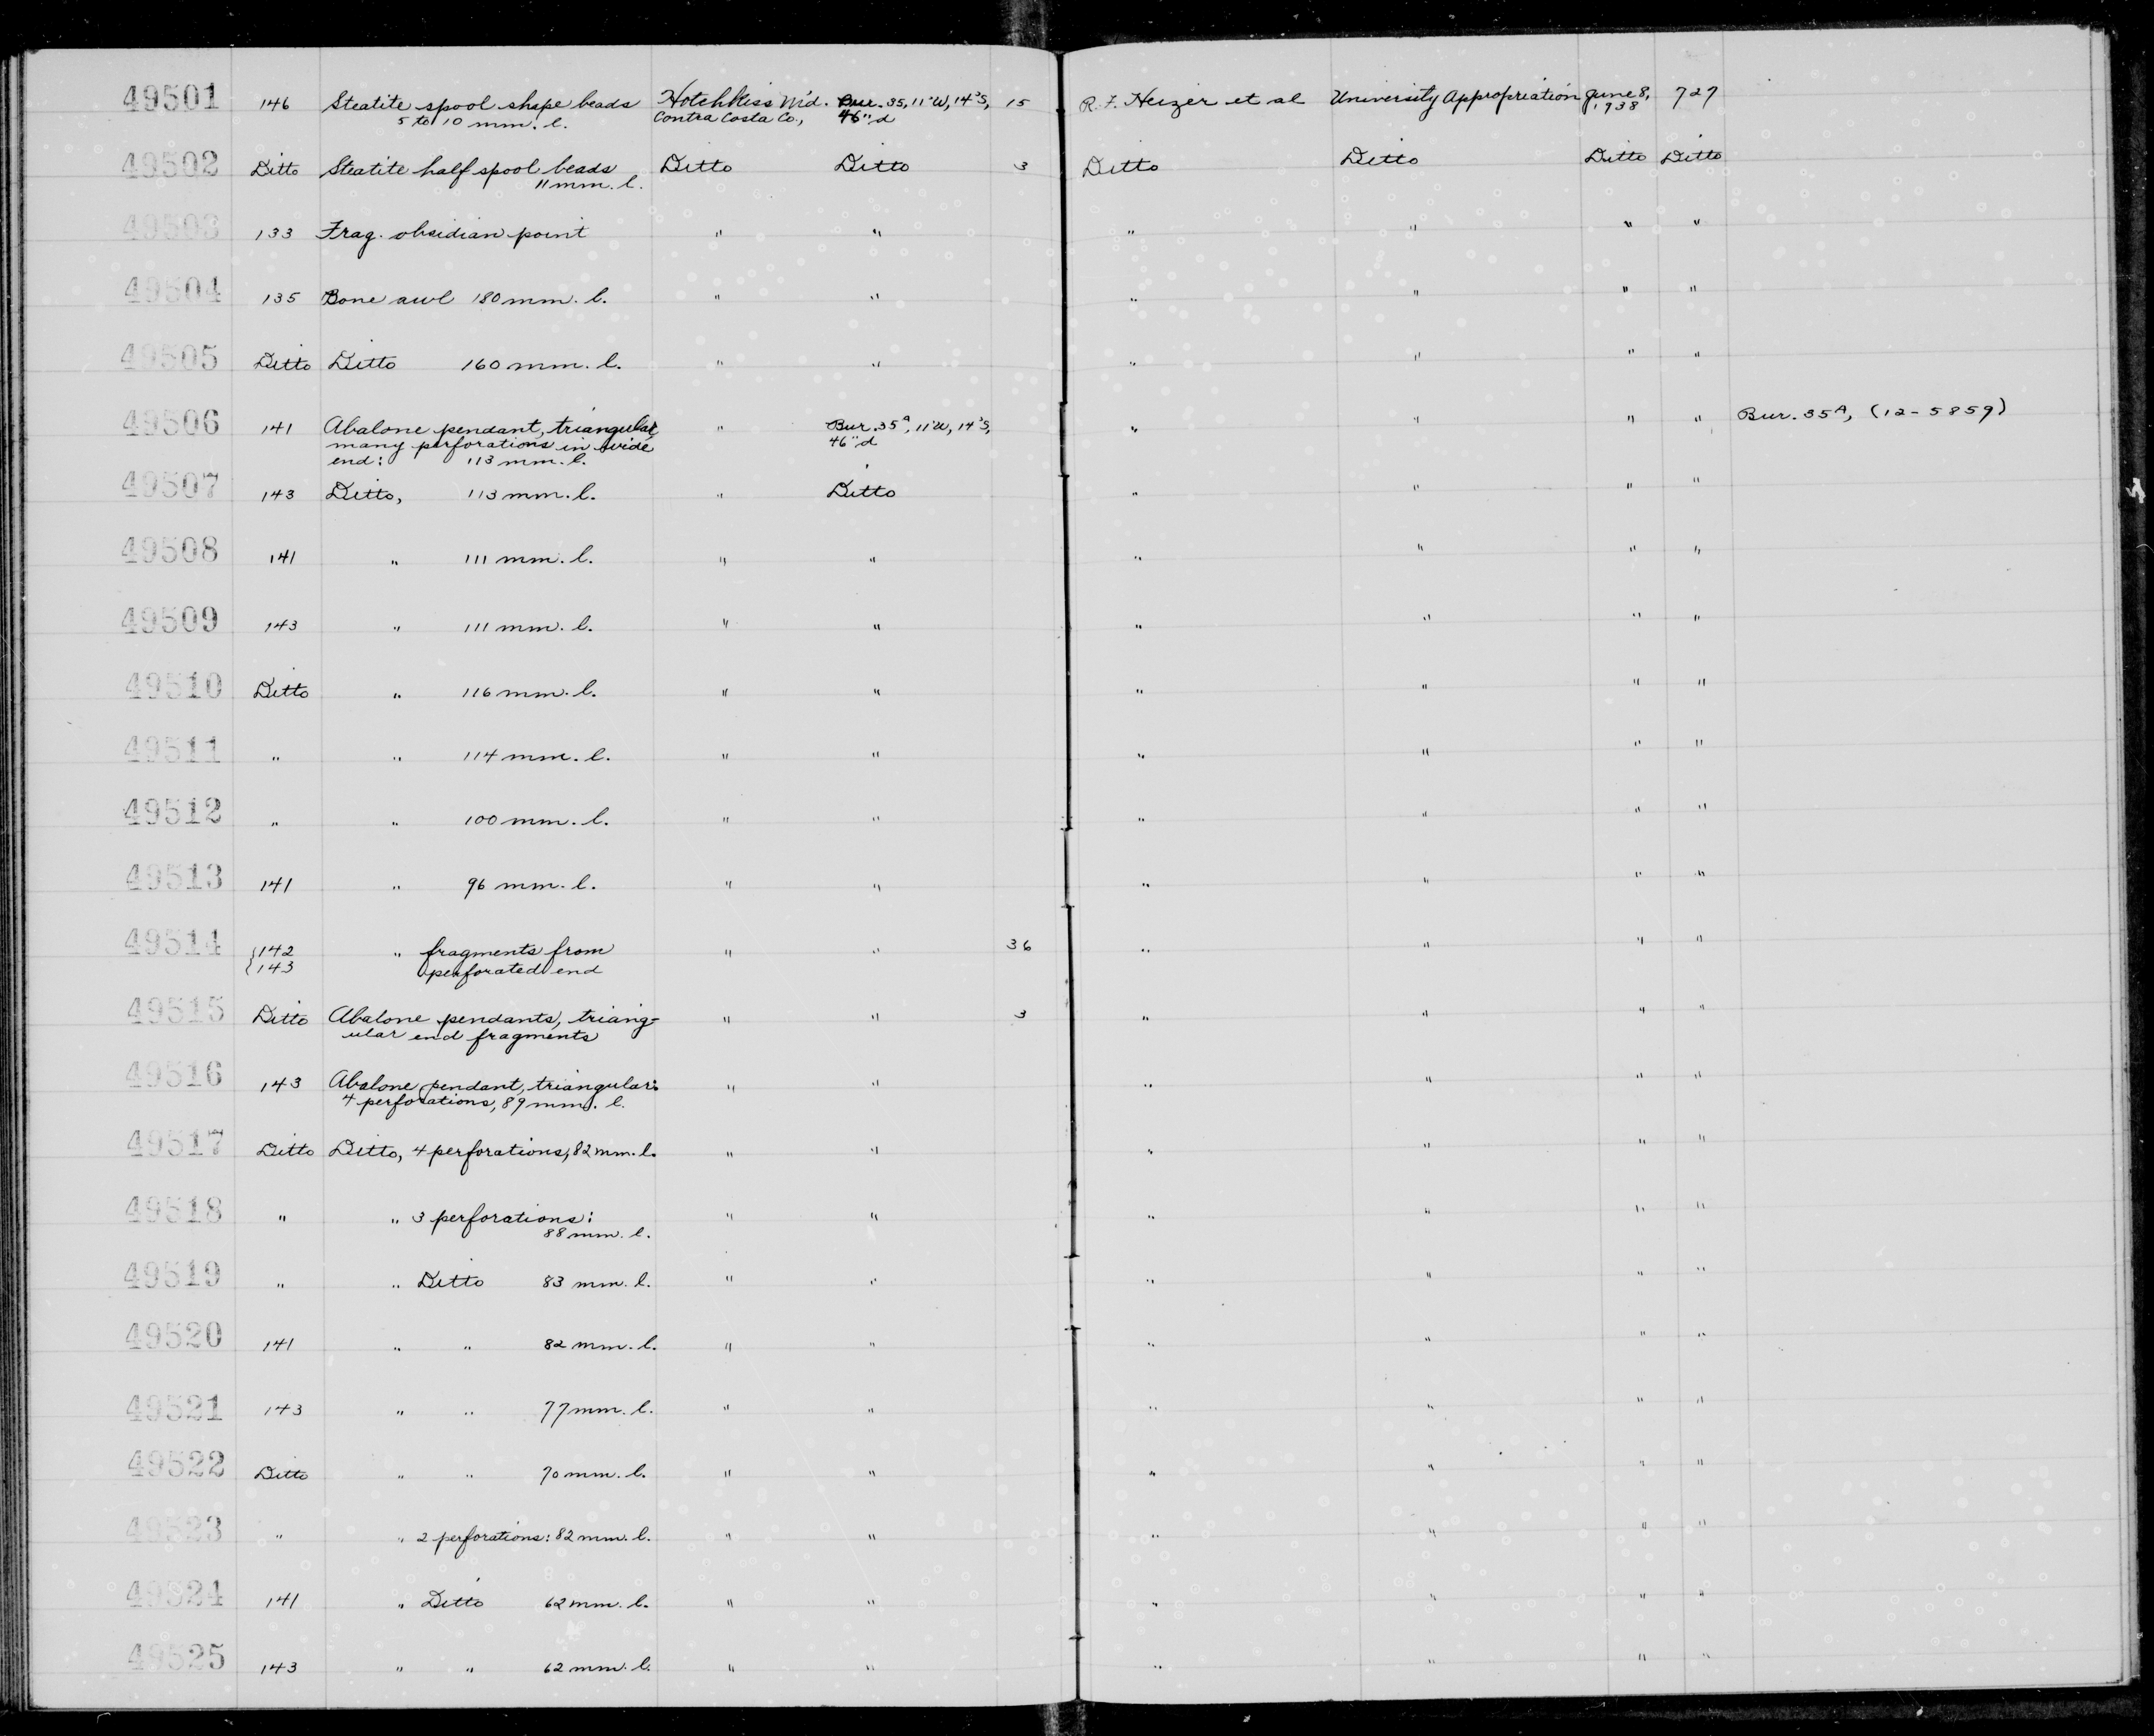 49501 146 Steatite spool shape beads Hotchkiss M'd. Bur. 35, 11'W, 14'S, 15 R. F. Heizer et al University Appropriation June 8, 727
5 to 10 mm. l. Contra Costa Co., 46" d 1938
49502 Ditto Steatite half spool beads Ditto Ditto 3 Ditto Ditto Ditto Ditto
11 mm. l.
49503 133 Frag. obsidian point " " " " " "
49504 135 Bone awl 180 mm. l. " " " " " "
49505 Ditto Ditto 160 mm. l. " " " " " "
49506 141 Abalone pendant, triangular, " Bur. 35A, 11'W, 14'S, " " " " Bur. 35A, (12-5859)
many perforations in wide 46" d
end: 113 mm. l.
49507 143 Ditto, 113 mm. l. " Ditto " " " "
49508 141 " 111 mm. l. " " " " " "
49509 143 " 111 mm. l. " " " " " "
49510 Ditto " 116 mm. l. " " " " " "
49511 " " 114 mm. l. " " " " " "
49512 " " 100 mm. l. " " " " " "
49513 141 " 96 mm. l. " " " " " "
49514 {142 " fragments from " " 36 " " " "
{143 perforated end
49515 Ditto Abalone pendants, triang- " " 3 " " " "
ular end fragments
49516 143 Abalone pendant, triangular: " " " " " "
4 perforations, 89 mm. l.
49517 Ditto Ditto, 4 perforations, 82 mm. l. " " " " " "
49518 " " 3 perforations: " " " " " "
88 mm. l.
49519 " " Ditto 83 mm. l. " " " " " "
49520 141 " " 82 mm. l. " " " " " "
49521 143 " " 77 mm. l. " " " " " "
49522 Ditto " " 70 mm. l. " " " " " "
49523 " " 2 perforations: 82 mm. l. " " " " " "
49524 141 " Ditto 62 mm. l. " " " " " "
49525 143 " " 62 mm. l. " " " " " "